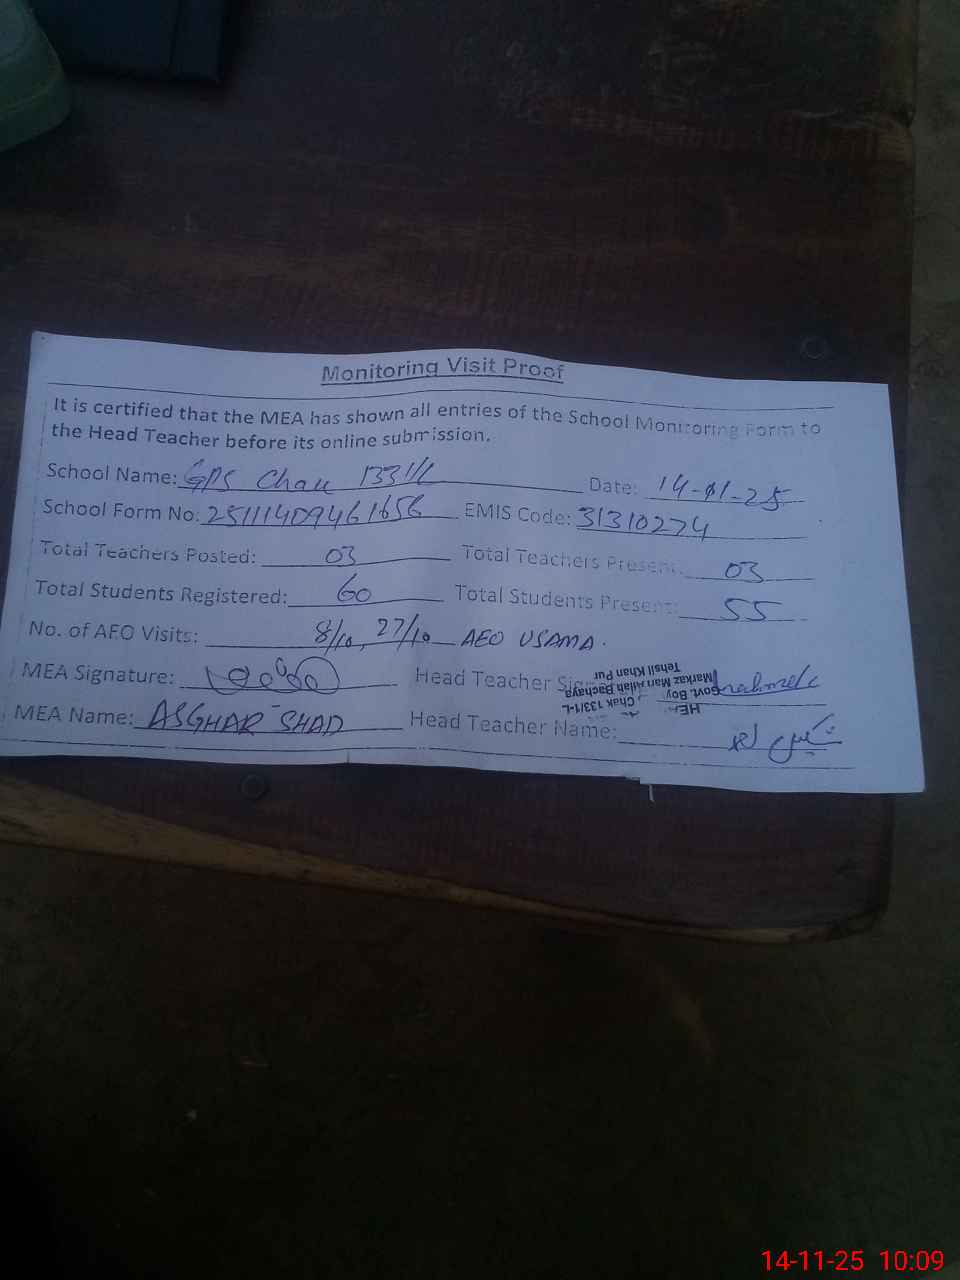 Monitoring Visit Proof
It is certified that the MEA has shown all entries of the School Monitoring Form to
the Head Teacher before its online submission.
School Name: GPS Chak 133/1L Date: 14-11-25
School Form No: 25111409461656 EMIS Code: 31310274
Total Teachers Posted: 03 Total Teachers Present: 03
Total Students Registered: 60 Total Students Present: 55
No. of AEO Visits: 8/10, 27/10 AEO USAMA.
MEA Signature: Head Teacher
MEA Name: ASGHAR SHAD Head Teacher Name:
Govt. Boy
Chak 133/1-L
Tehsil Khan Pur
14-11-25 10:09